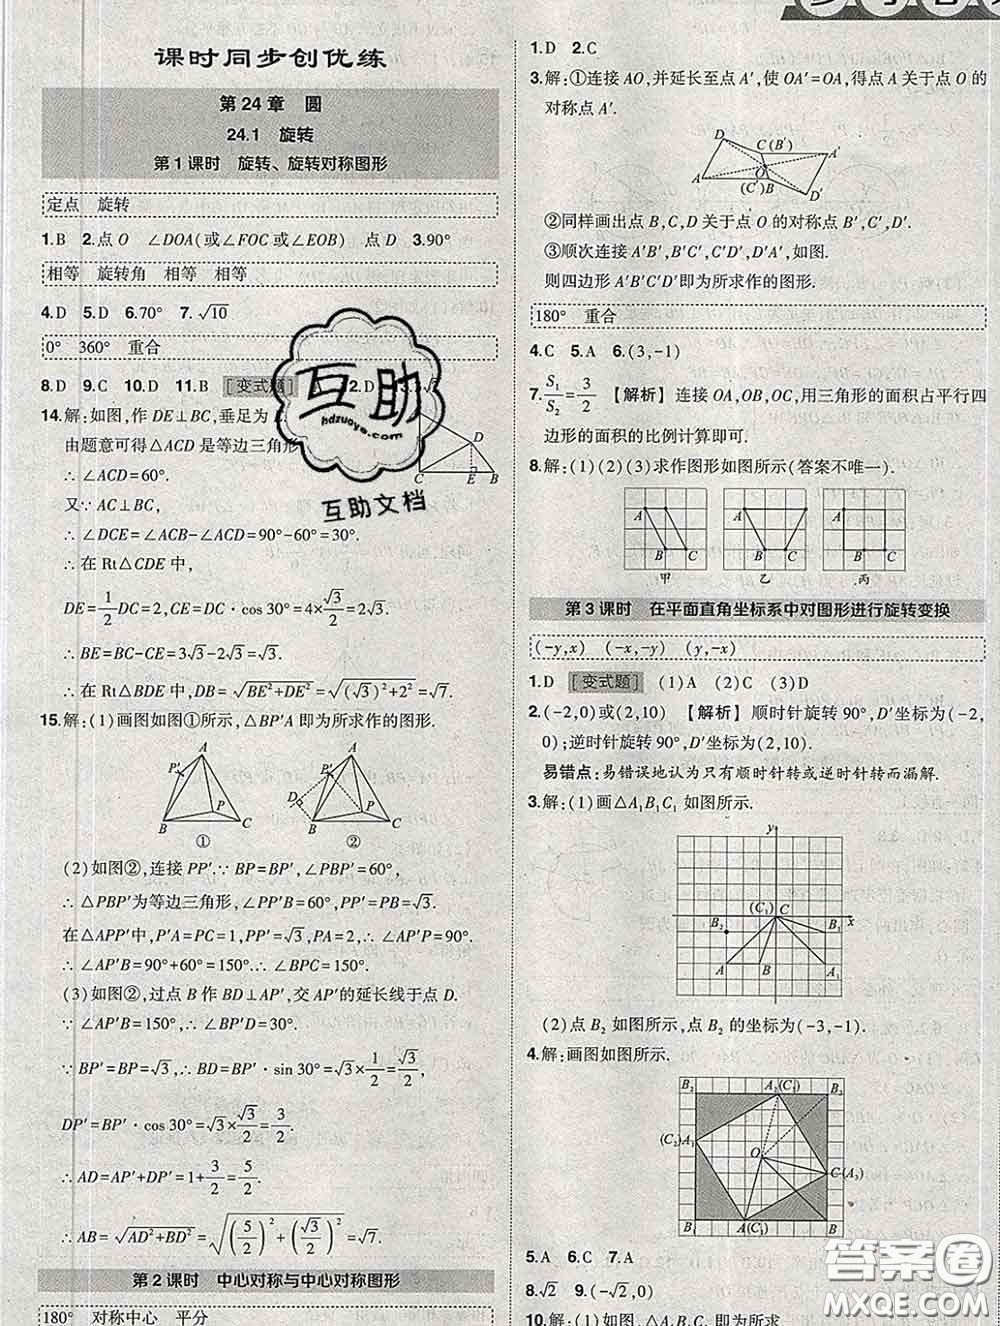 课时同步创优练
第24章 圆
24.1 旋转
第1课时 旋转、旋转对称图形
定点 旋转
1.B 2.点O ∠DOA(或∠FOC或∠EOB) 点D 3.90°
相等 旋转角 相等 相等
4.D 5.D 6.70° 7.√10
0° 360° 重合
8.D 9.C 10.D 11.B [变式题]
14.解:如图,作DE⊥BC,垂足为
由题意可得△ACD是等边三角形
∴∠ACD=60°.
又∵AC⊥BC,
∴∠DCE=∠ACB-∠ACD=90°-60°=30°.
∴在Rt△CDE中,
DE=1/2DC=2,CE=DC·cos 30°=4×√3/2=2√3.
∴BE=BC-CE=3√3-2√3=√3.
∴在Rt△BDE中,DB=√(BE²+DE²)=√((√3)²+2²)=√7.
D
C E B
15.解:(1)画图如图①所示,△BP'A即为所求作的图形.
A P' P B C ①
A P' D P B C ②
(2)如图②,连接PP'.∵BP=BP',∠PBP'=60°,
∴△PBP'为等边三角形,∴PP'=PB=√3.
在△APP'中,P'A=PC=1,PP'=√3,PA=2,∴∠AP'P=90°.
∴∠AP'B=90°+60°=150°.∴∠BPC=∠AP'B=150°.
(3)如图②,过点B作BD⊥AP',交AP'的延长线于点D.
∵∠AP'B=150°,∴∠DP'B=30°.
∵BP'=BP=√3,∴BD=BP'·sin 30°=√3×1/2=√3/2,
DP'=BP'·cos 30°=√3×√3/2=3/2.
∴AD=AP'+DP'=1+3/2=5/2.
∴AB=√(AD²+BD²)=√((5/2)²+(√3/2)²)=√7.
第2课时 中心对称与中心对称图形
180° 对称中心 平分
1.D 2.C
3.解:①连接AO,并延长至点A',使OA'=OA,得点A关于点O的
对称点A'.
D C(B') A'
O
A (C')B D'
②同样画出点B,C,D关于点O的对称点B',C',D'.
③顺次连接A'B',B'C',C'D',D'A',如图.
则四边形A'B'C'D'即为所求作的图形.
180° 重合
4.C 5.A 6.(3,-1)
7.S₁/S₂=3/2 【解析】连接OA,OB,OC,用三角形的面积占平行四
边形的面积的比例计算即可.
8.解:(1)(2)(3)求作图形如图所示(答案不唯一).
A B C 甲
A B C 乙
A B C 丙
第3课时 在平面直角坐标系中对图形进行旋转变换
(-y,x) (-x,-y) (y,-x)
1.D [变式题] (1)A (2)C (3)D
2.(-2,0)或(2,10) 【解析】顺时针旋转90°,D'坐标为(-2,
0);逆时针旋转90°,D'坐标为(2,10).
易错点:易错误地认为只有顺时针转或逆时针转而漏解.
3.解:(1)画△A₁B₁C₁如图所示.
y
(C₁) C
B₂ B₁ x
A B A₁
(2)点B₂如图所示,点B₂的坐标为(-3,-1).
4.解:画图如图所示.
B₂ A₂(C₁) B₃
(C₂)A₁
O
C(A₃)
B₁ A(C₃) B
5.A 6.C 7.A
8.√2 9.(-√2,0)
10.解:(1)如图,△
互助
hdzuoye.com
互助文档
答案圈
MXQE.COM